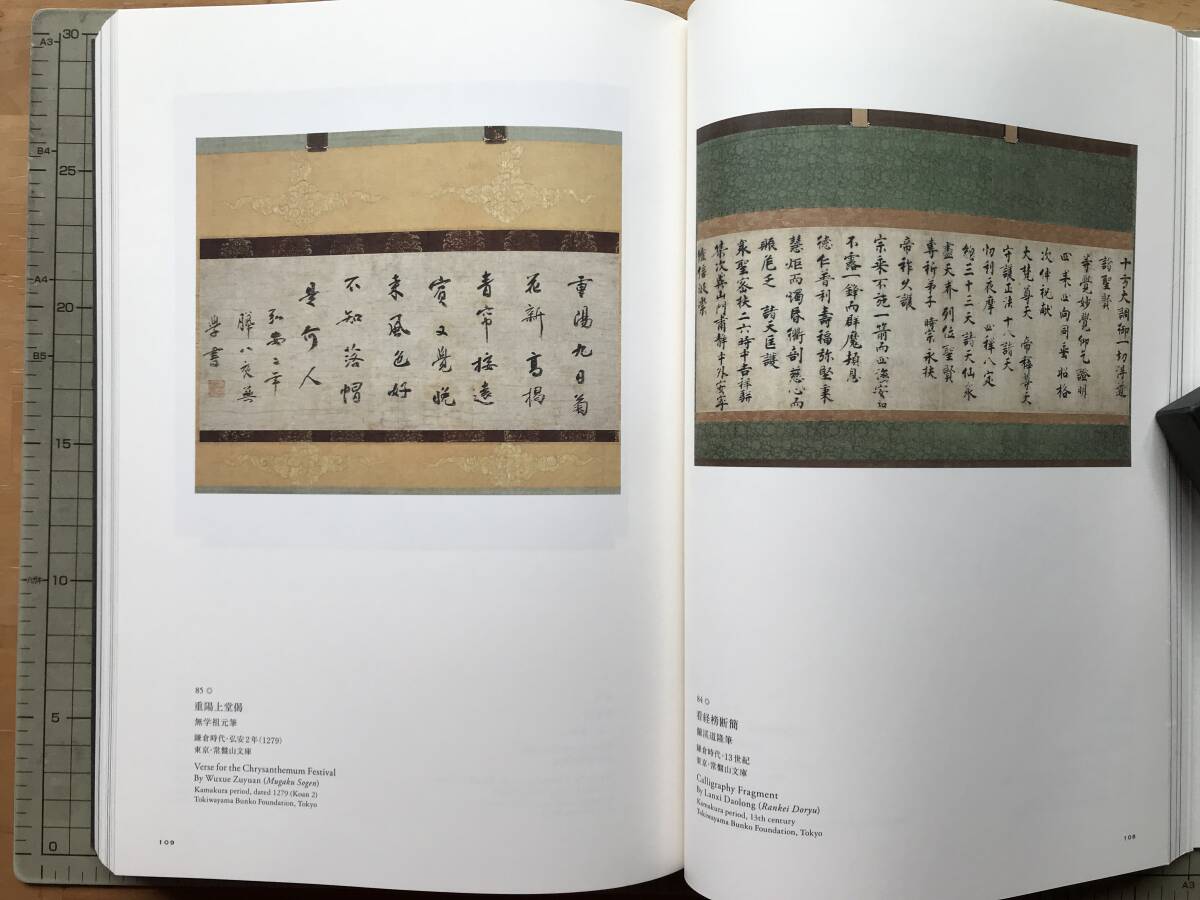 十方大調御一切淨道
諸聖賢
等覺妙覺仰允證明
向同垂昭格
次伸祝献
大梵尊天 帝釋尊天
守護正法十八諸天
忉利夜摩 禅八定
三十三天諸天仙衆
盡天界列位聖賢
專祈弟子時宗永扶
帝祚久護
宗乘不施一箭而四海安和
不露一鋒而群魔頓息
德仁普利壽福弥堅秉
慧炬而燭昏衢剖慈心而
賑危乏 諸天匡護
衆聖密扶二六時中吉祥駢
集次冀山門肅靜中外安寧
檀信皈崇
84◎
看経榜断簡
蘭渓道隆筆
鎌倉時代・13世紀
東京・常盤山文庫
Calligraphy Fragment
By Lanxi Daolong (Rankei Doryu)
Kamakura period, 13th century
Tokiwayama Bunko Foundation, Tokyo
108
重陽九日菊
花新高揭
青帘接遠
賓又覺晚
来風色好
不知落帽
是何人
弘安二年
臘八夜無
學書
85◎
重陽上堂偈
無学祖元筆
鎌倉時代・弘安2年(1279)
東京・常盤山文庫
Verse for the Chrysanthemum Festival
By Wuxue Zuyuan (Mugaku Sogen)
Kamakura period, dated 1279 (Koan 2)
Tokiwayama Bunko Foundation, Tokyo
109
30
A3
B4
25
A4
20
B5
15
10
5
0
A3